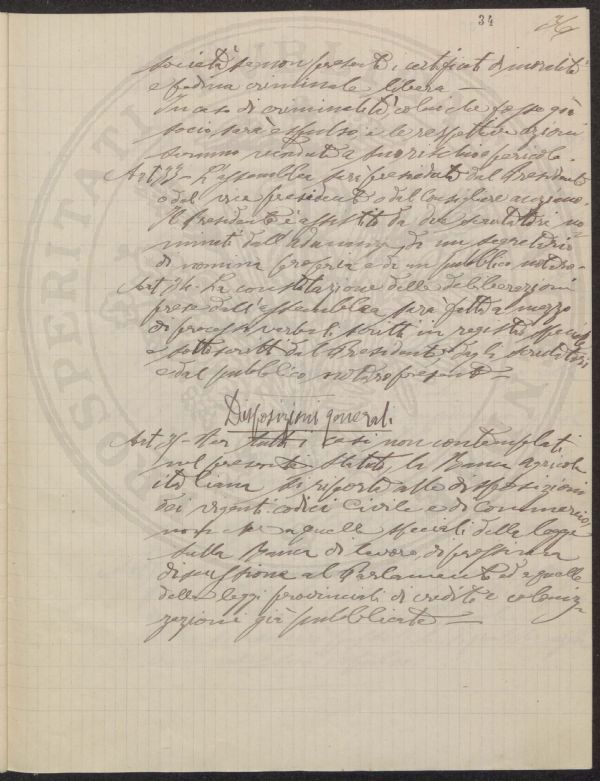 34
società se non presenti certificati di moralità
e fedina criminale libera —
In caso di criminalità colui che fosse già
socio sarà espulso e le rispettive azioni
saranno vendute a suo rischio e pericolo.
Art. — L'assemblea sarà presieduta dal Presidente
o dal vice presidente o dal Consigliere anziano.
Il Presidente è assistito da due scrutatori no-
minati dall'adunanza, da un segretario
di nomina propria e da un pubblico notaro.
Art. — La constatazione delle deliberazioni
prese dall'assemblea sarà fatta a mezzo
di processi verbali scritti in registro speciale
e sottoscritti dal Presidente dagli scrutatori
e dal pubblico notaro presente —
Disposizioni generali
Art. — Per tutti i casi non contemplati
nel presente Statuto, la Banca agricola
italiana si riporta alle disposizioni
dei vigenti codici Civile e di Commercio,
non che a quelle speciali della legge
sulla Banca di lavoro, di prossima
discussione al Parlamento ed a quelle
delle leggi provinciali di credito e coloniz-
zazioni già pubblicate —
PROSPERITATI